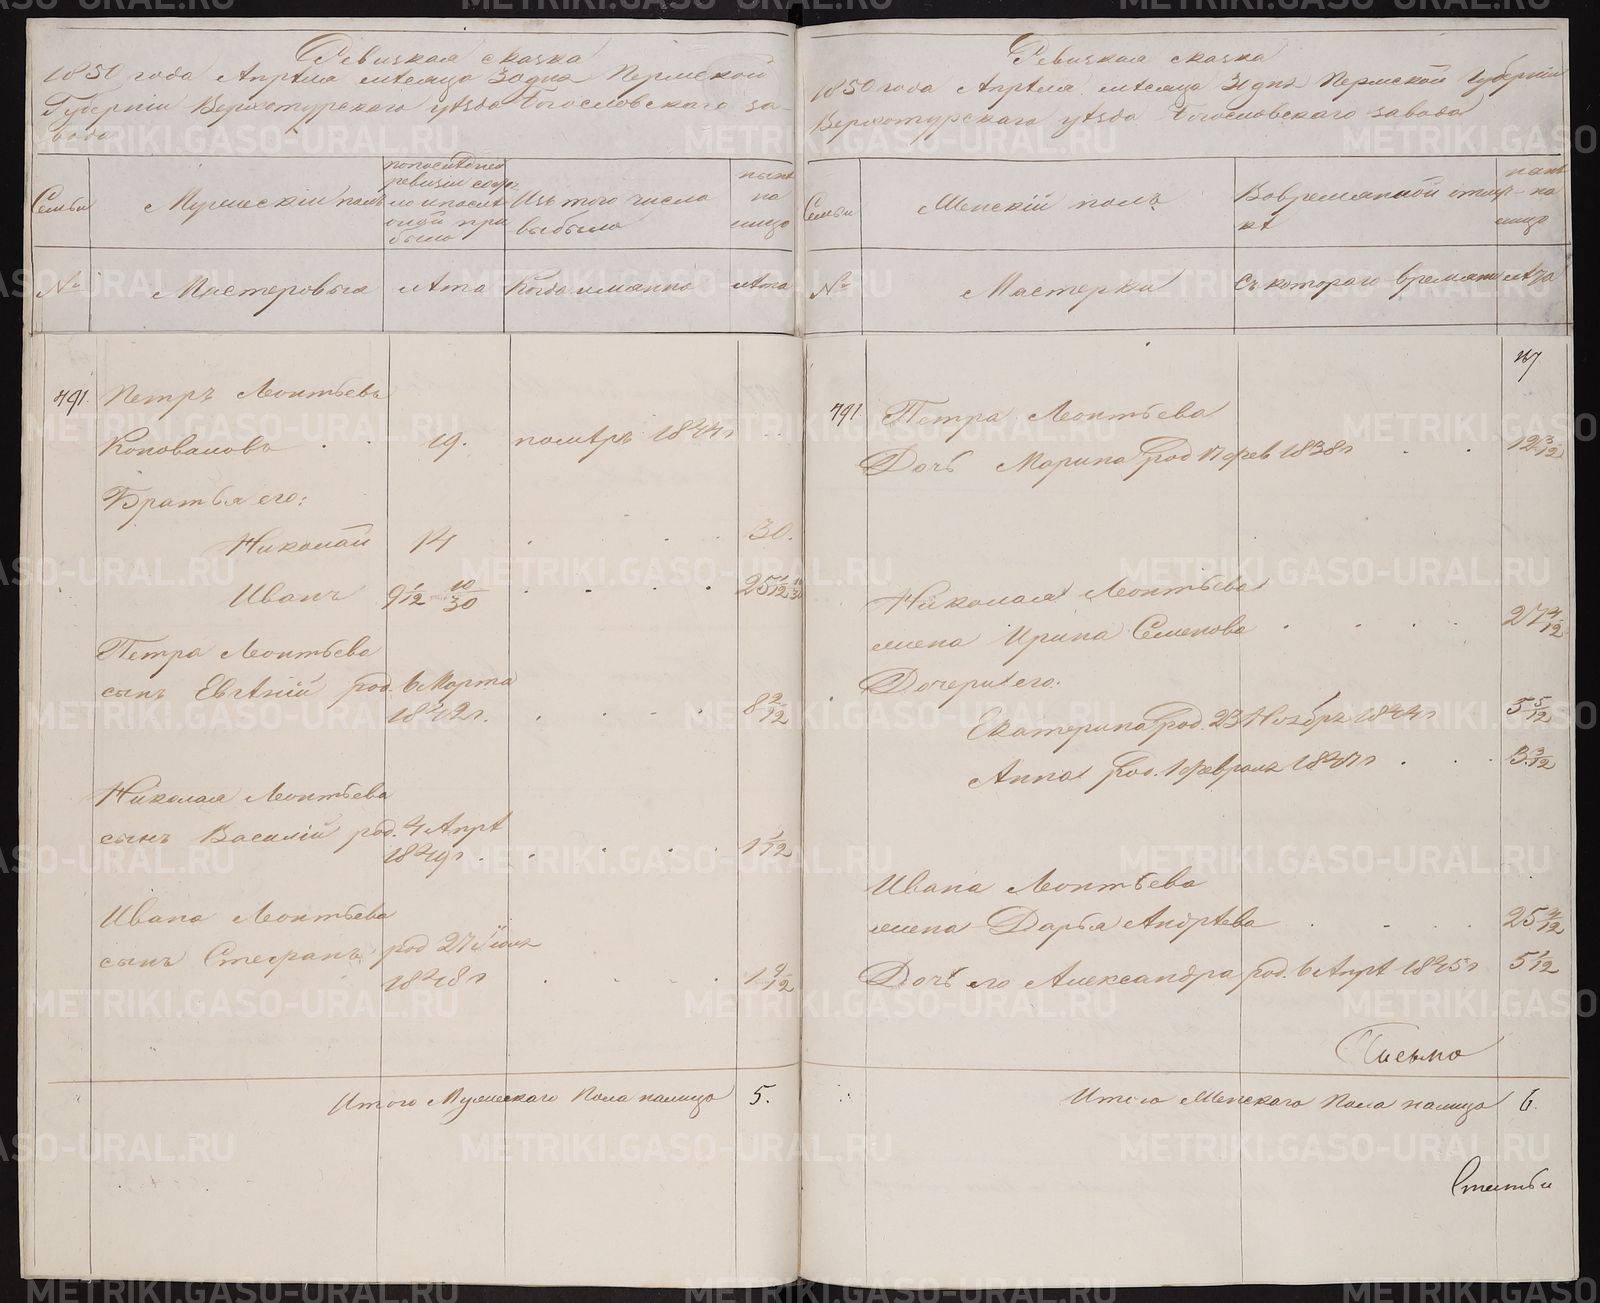 Ревизкая сказка
1850 года Апреля месяца 30 дня Пермской
Губернiи Верхотурскаго уѣзда Богословскаго за-
вода
Семьи
Мужескiй полъ
Изъ того числа
выбыло
нынѣ
на
лицо
№
Мастеровыя
Лѣта
Когда имянно
Лѣта
491.
Петръ Леонтьевъ
Коноваловъ . . 19. помѣръ 1844г
Братья его:
Николай 14 30.
Иванъ 9 1/12 10/30 25 1/12 10/30
Петра Леонтьева
сынъ Евгѣнiй род. 6 Марта
1842г. 8 2/12
Николая Леонтьева
сынъ Василiй род. 4 Апрѣ
1849г. 1 1/12
Ивана Леонтьева
сынъ Стефанъ род 27 Iюля
1848г 1 9/12
Итого Мужескаго Пола налицо 5.
Ревизкая сказка
1850 года Апреля месяца 30 дня Пермской Губернiи
Верхотурскаго уѣзда Богословскаго завода
Семьи
Женскiй полъ
Вовремянной отлуч-
кѣ
нынѣ
на
лицо
№
Мастерки
Съ котораго времяни
лѣта
491
Петра Леонтьева
Дочь Марина род 17 фев 1838г 12 3/12
Николая Леонтьева
жена Ирина Семенова 27 4/12
Дочери его:
Екатерина род. 23 Ноябр 1844г 5 5/12
Анна род. 1 февраля 1847г 3 3/12
Ивана Леонтьева
жена Дарья Андрѣева 25 4/12
Дочь его Александра род. 6 Апрѣ 1845г 5 1/12
Письмо
Итого Женскаго Пола налицо 6.
Статьи
METRIKI.GASO-URAL.RU